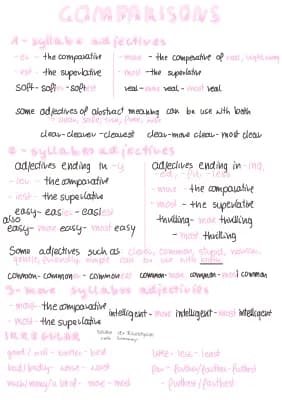 COMPARISONS
1 - syllabe adjectives
-er - the comparative
-est - the superlative
soft - softer - softest
-more - the comperative of real, right, wrong
-most - the superlative
real - more real - most real
some adjectives of abstract meaning can be use with both
clear, safe, true, free,
clear-clearer-clearest clear-more clear-most clear
2 - syllabes adjectives
adjectives ending in -y
-ier - the comparative
-iest - the superlative
easy - easier - easiest
also
easy - more easy - most easy
adjectives ending in -ing,
-ed, -ful, -less
-more - the comparative
-most - the superlative
thrilling - more thrilling
- most thrilling
Some adjectives such as clever, common, stupid, narrow,
gentle, friendly, simple can be use with both
common-commoner-commonest common-more common-most common
3 - more syllabes adjectives
-more - the comparative
-most - the superlative
intelligent - more intelligent - most intelligent
IRREGULAR
good/well - better - best
bad/badly - worse - worst
much/many/a lot of - more - most
little - less - least
far - farther/further - farthest
- furthest/farthest